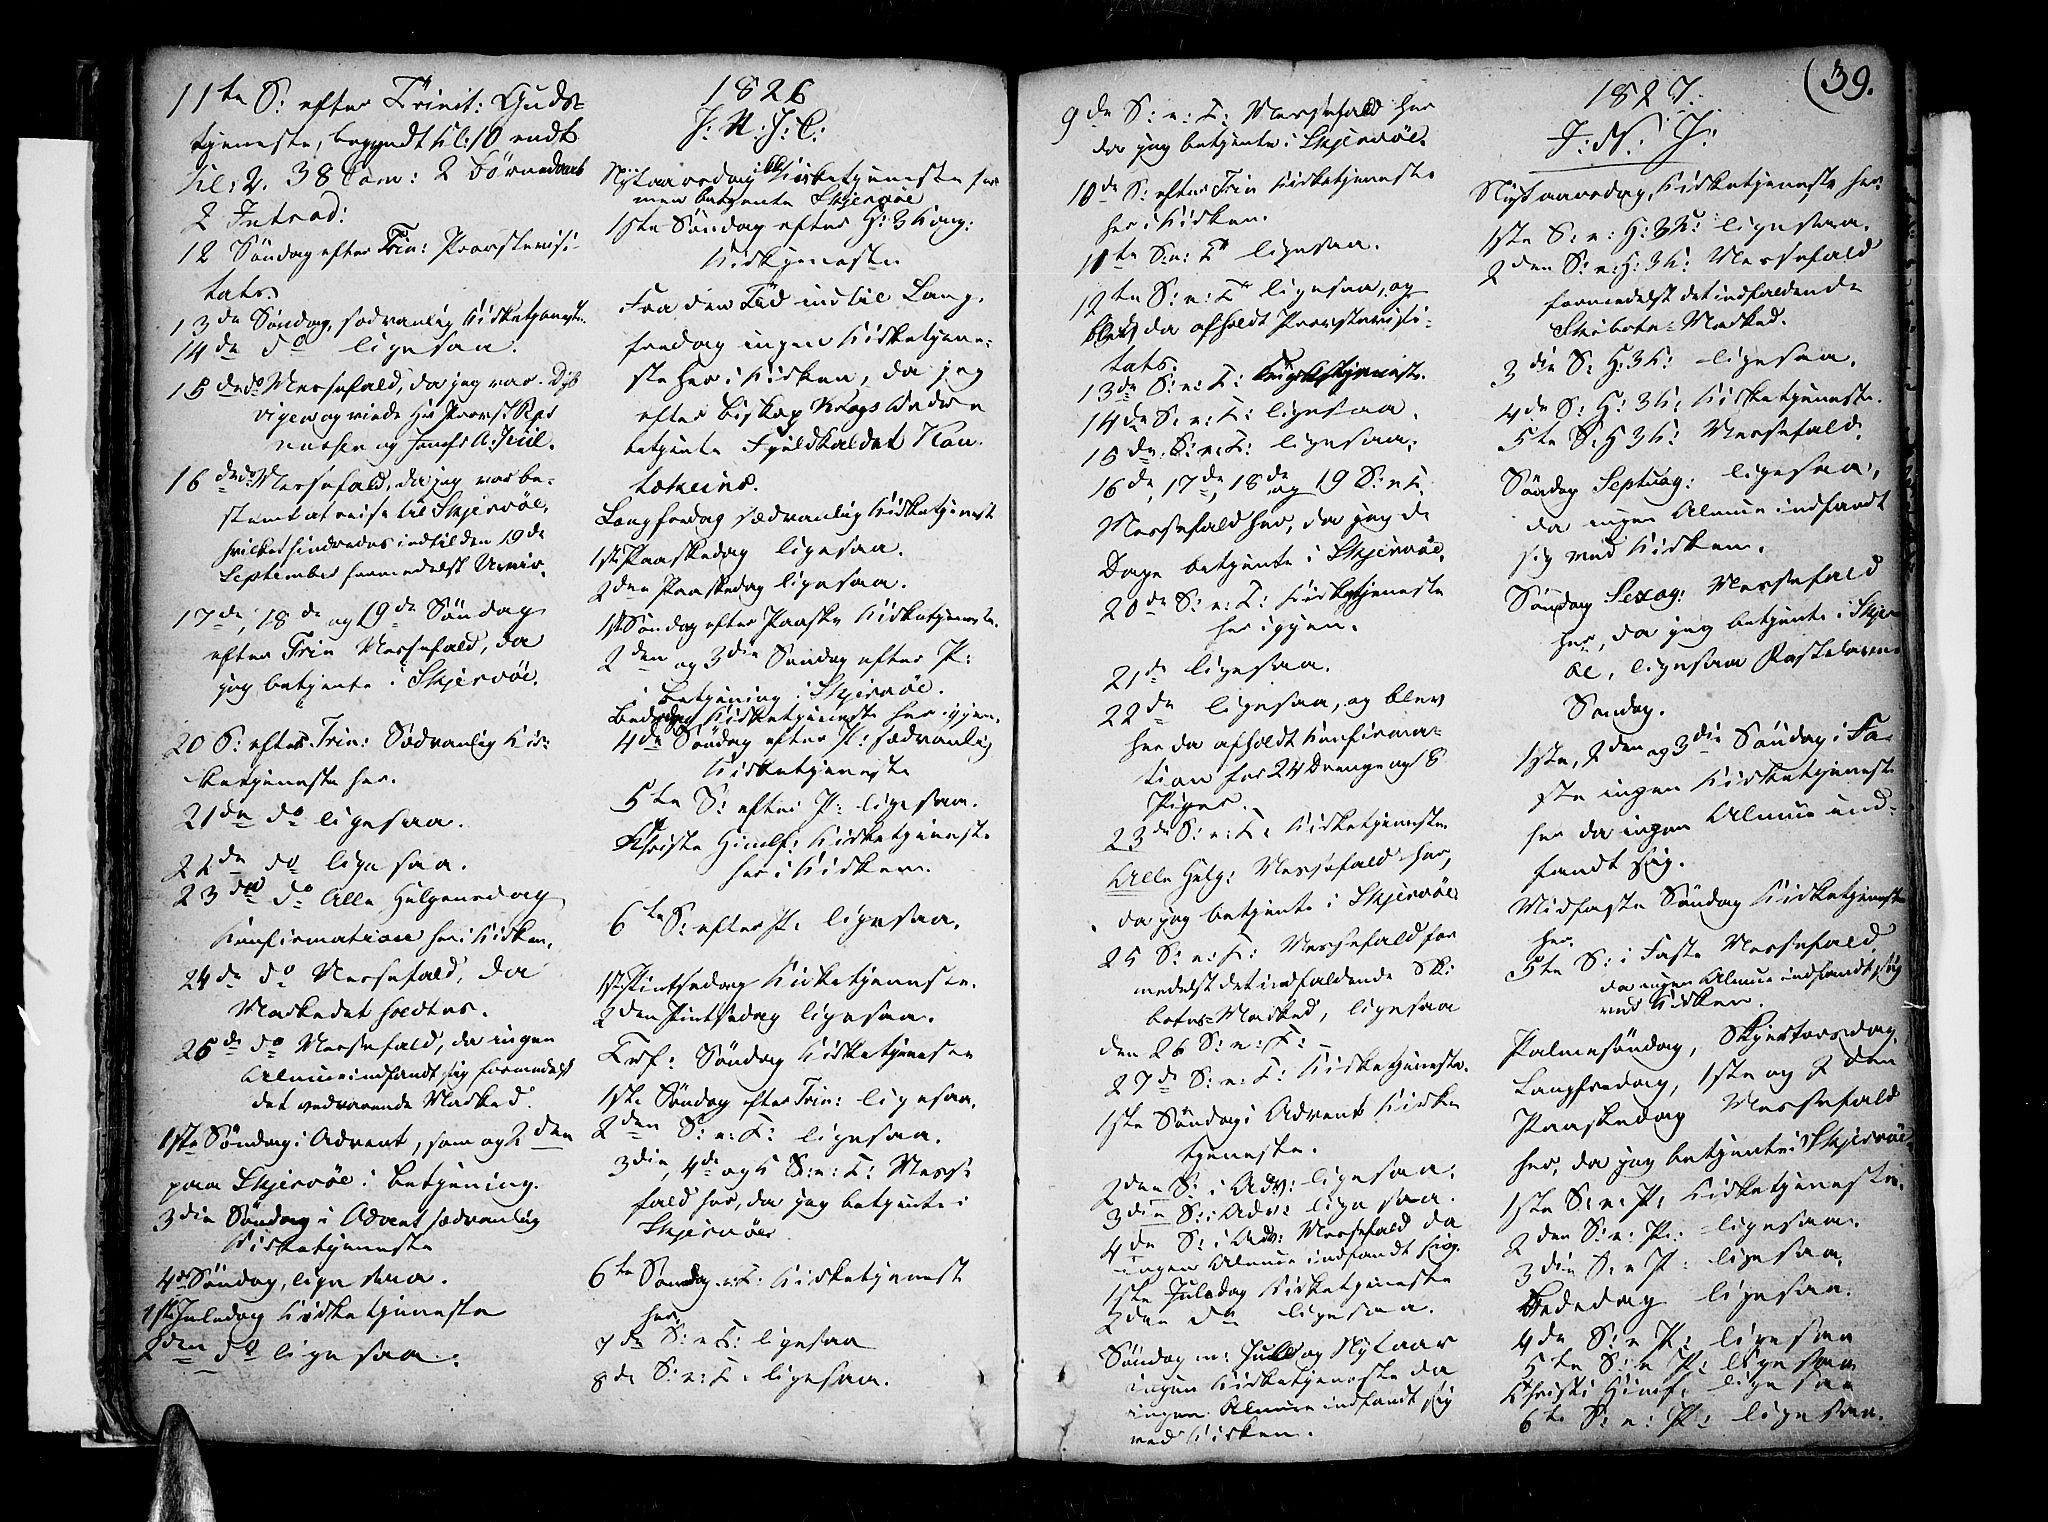 11te S: efter Trinit: Guds=
tjeneste, begyndt kl: 10 endt
kl: 2. 38 Com: 2 Børnedaab
2 Introd:
12 Søndag efter Trin: Proostevisi-
tats.
13de Søndag, sædvanlig Kirketjeneste.
14de do ligesaa.
15de do Messefald, da jeg var
og
nassen og A. Juul.
16de do Messefald, da jeg var be-
stemt at reise til Skjervöe,
hvilket hindredes indtil den 19de
September formedelst Uveir.
17de, 18de og 19de Søndag
efter Trin Messefald, da
jeg betjente i Skjervöe.
20 S: efter Trin: Sædvanlig Kir-
ketjeneste her.
21de do ligesaa.
22de do ligesaa.
23de do Alle Helgensdag
Konfirmation her i Kirken.
24de do Messefald, da
Markedet holdtes.
25de do Messefald, da ingen
Almue indfandt sig formedelst
det vedvarende Marked.
1ste Søndag i Advent, som og 2den
paa Skjervöe i Betjening.
3die Søndag i Advent sædvanlig
Kirketjeneste
4de Søndag, ligesaa.
1ste Juledag Kirketjeneste
2den do ligesaa.
1826
J: N: J: C:
Nytaarsdag ikke Kirketjeneste her
men betjente Skjervöe
1ste Søndag efter H: 3 Kong:
Kirketjeneste
Fra den Tid indtil Lang-
fredag ingen Kirketjene-
ste her i Kirken, da jeg
efter Biskop Krogs Ordre
betjente Fjeldkaldet Kau-
tokeino.
Langfredag sædvanlig Kirketjeneste
1ste Paaskedag ligesaa.
2den Paaskedag ligesaa.
1ste Søndag efter Paaske Kirketjeneste.
2den og 3die Søndag efter P:
i Betjening i Skjervöe.
Bededag Kirketjeneste her igjen.
4de Søndag efter P: sædvanlig
Kirketjeneste
5te S: efter P: ligesaa.
Christi Himlf: Kirketjeneste
her i Kirken.
6te S: efter P: ligesaa.
1ste Pintsedag Kirketjeneste.
2den Pintsedag ligesaa.
Tref: Søndag Kirketjeneste
1ste Søndag efter Trin: ligesaa.
2den S: e: T: ligesaa.
3die, 4de og 5 S: e: T: Messe
fald her, da jeg betjente i
Skjervöe.
6te Søndag e: T: Kirketjeneste
her.
7de S: e T: ligesaa
8de S: e: T: ligesaa.
9de S: e: T: Messefald her
da jeg betjente i Skjervöe.
10de S: efter Trin Kirketjeneste
her i Kirken.
11te S: e: Tr ligesaa.
12te S: e: Tr ligesaa, og
blev da afholdt Proostevisi-
tats.
13de S: e: T:
14de S: e: T: ligesaa.
15de S: e: T: ligesaa.
16de, 17de, 18de og 19 S: e T.
Messefald her, da jeg de
Dage betjente i Skjervöe.
20de S: e: T: Kirketjeneste
her igjen.
21de ligesaa.
22de ligesaa, og blev
her da afholdt Konfirma=
tion for 24 Drenge og 8
Piger.
23de S: e: T: Kirketjeneste.
Alle Helg: Messefald her,
da jeg betjente i Skjervöe
25 S: e: T: Messefald for
medelst det indfaldende Ski-
botns=Marked, ligesaa
den 26 S: e: T:
27de S: e: T: Kirketjeneste.
1ste Søndag i Advent Kirke
tjeneste.
2den S: i Adv: ligesaa.
3die S: i Adv: ligesaa.
4de S: i Adv: Messefald da
ingen Almue indfandt sig.
1ste Juledag Kirketjeneste
2den do ligesaa.
Søndag m: Jul og Nytaar
ingen Kirketjeneste da
ingen Almue indfandt sig
ved Kirken.
(39.
1827.
J: N: J:
Nytaarsdag, Kirketjeneste her.
1ste S: e: H: 3K: ligesaa.
2den S: e: H: 3K: Messefald
formedelst det indfaldende
Skibotn=Marked.
3die S: H: 3K: ligesaa.
4de S: H: 3K: Kirketjeneste.
5te S: H 3K: Messefald.
Søndag Septuag: ligesaa,
da ingen Almue indfandt
sig ved Kirken.
Søndag Sexag: Messefald
her, da jeg betjente i Skjer-
öe, ligesaa Fastelavns
Søndag.
1ste, 2den og 3die Søndag i Fa-
ste ingen Kirketjeneste
her da ingen Almue ind-
fandt sig.
Midfaste Søndag Kirketjeneste
her.
5te S: i Faste Messefald
da ingen Almue indfandt sig
ved Kirken.
Palmesøndag, Skjertorsdag,
Langfredag, 1ste og 2den
Paaskedag Messefald
her, da jeg betjente i Skjervöe.
1ste S: e: P: Kirketjeneste.
2den S: e: P: ligesaa.
3die S: e P: ligesaa.
Bededag ligesaa.
4de S: e P: ligesaa
5te S: e P: ligesaa
Christi Himf: ligesaa
6te S: e: P: ligesaa.